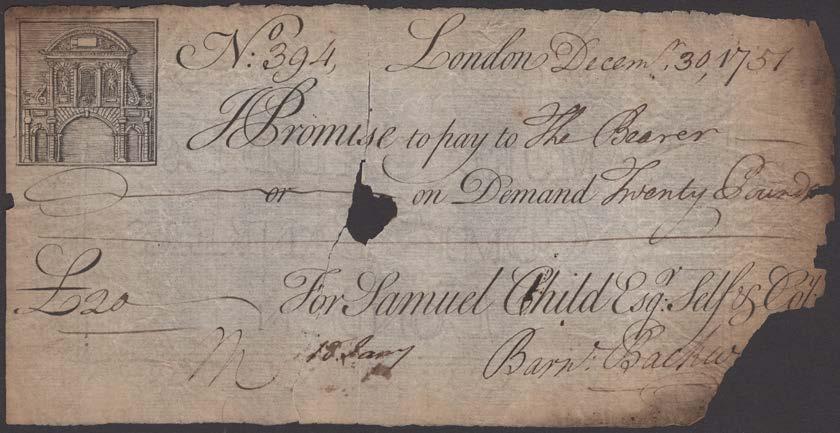 No: 394, London Decemr. 30, 1751
I Promise to pay to The Bearer
or on Demand Twenty Pounds
£20 For Samuel Child Esqr. Self & Co:
18 Jany Barnd.